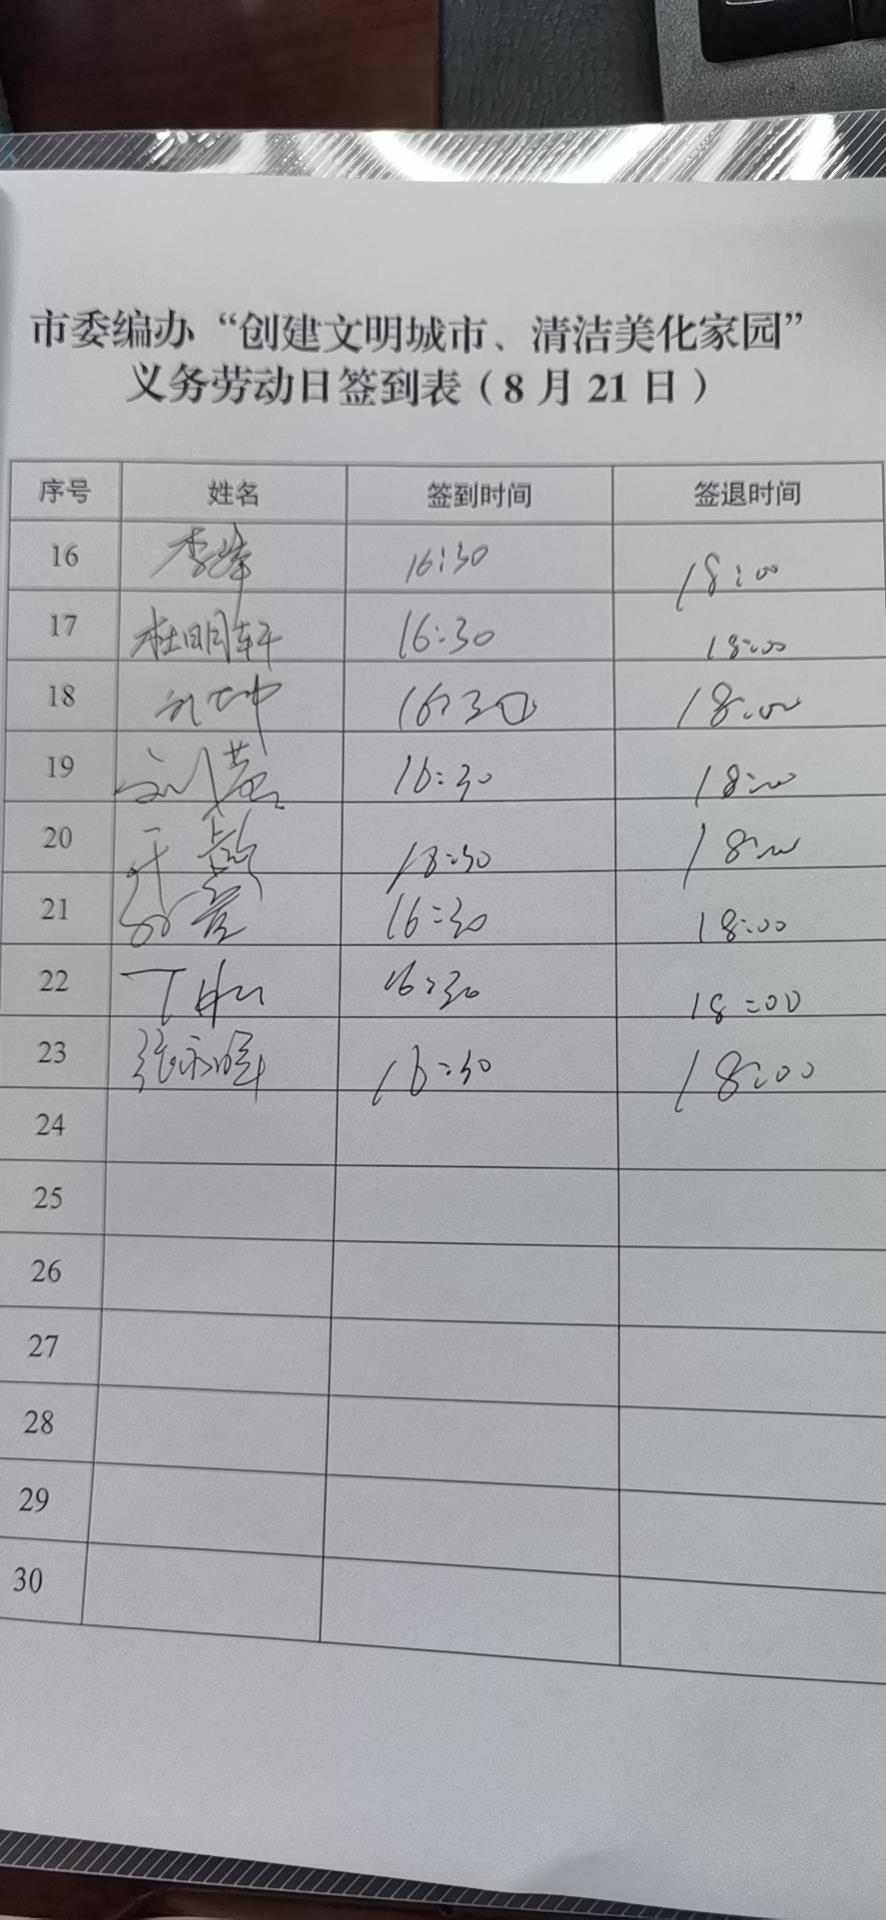 市委编办“创建文明城市、清洁美化家园”
义务劳动日签到表（8月21日）
序号 姓名 签到时间 签退时间
16 李峰 16:30 18:00
17 杜明轩 16:30 18:00
18 16:30 18:00
19 刘 16:30 18:00
20 18:30 18:00
21 16:30 18:00
22 丁 16:30 18:00
23 张 16:30 18:00
24
25
26
27
28
29
30